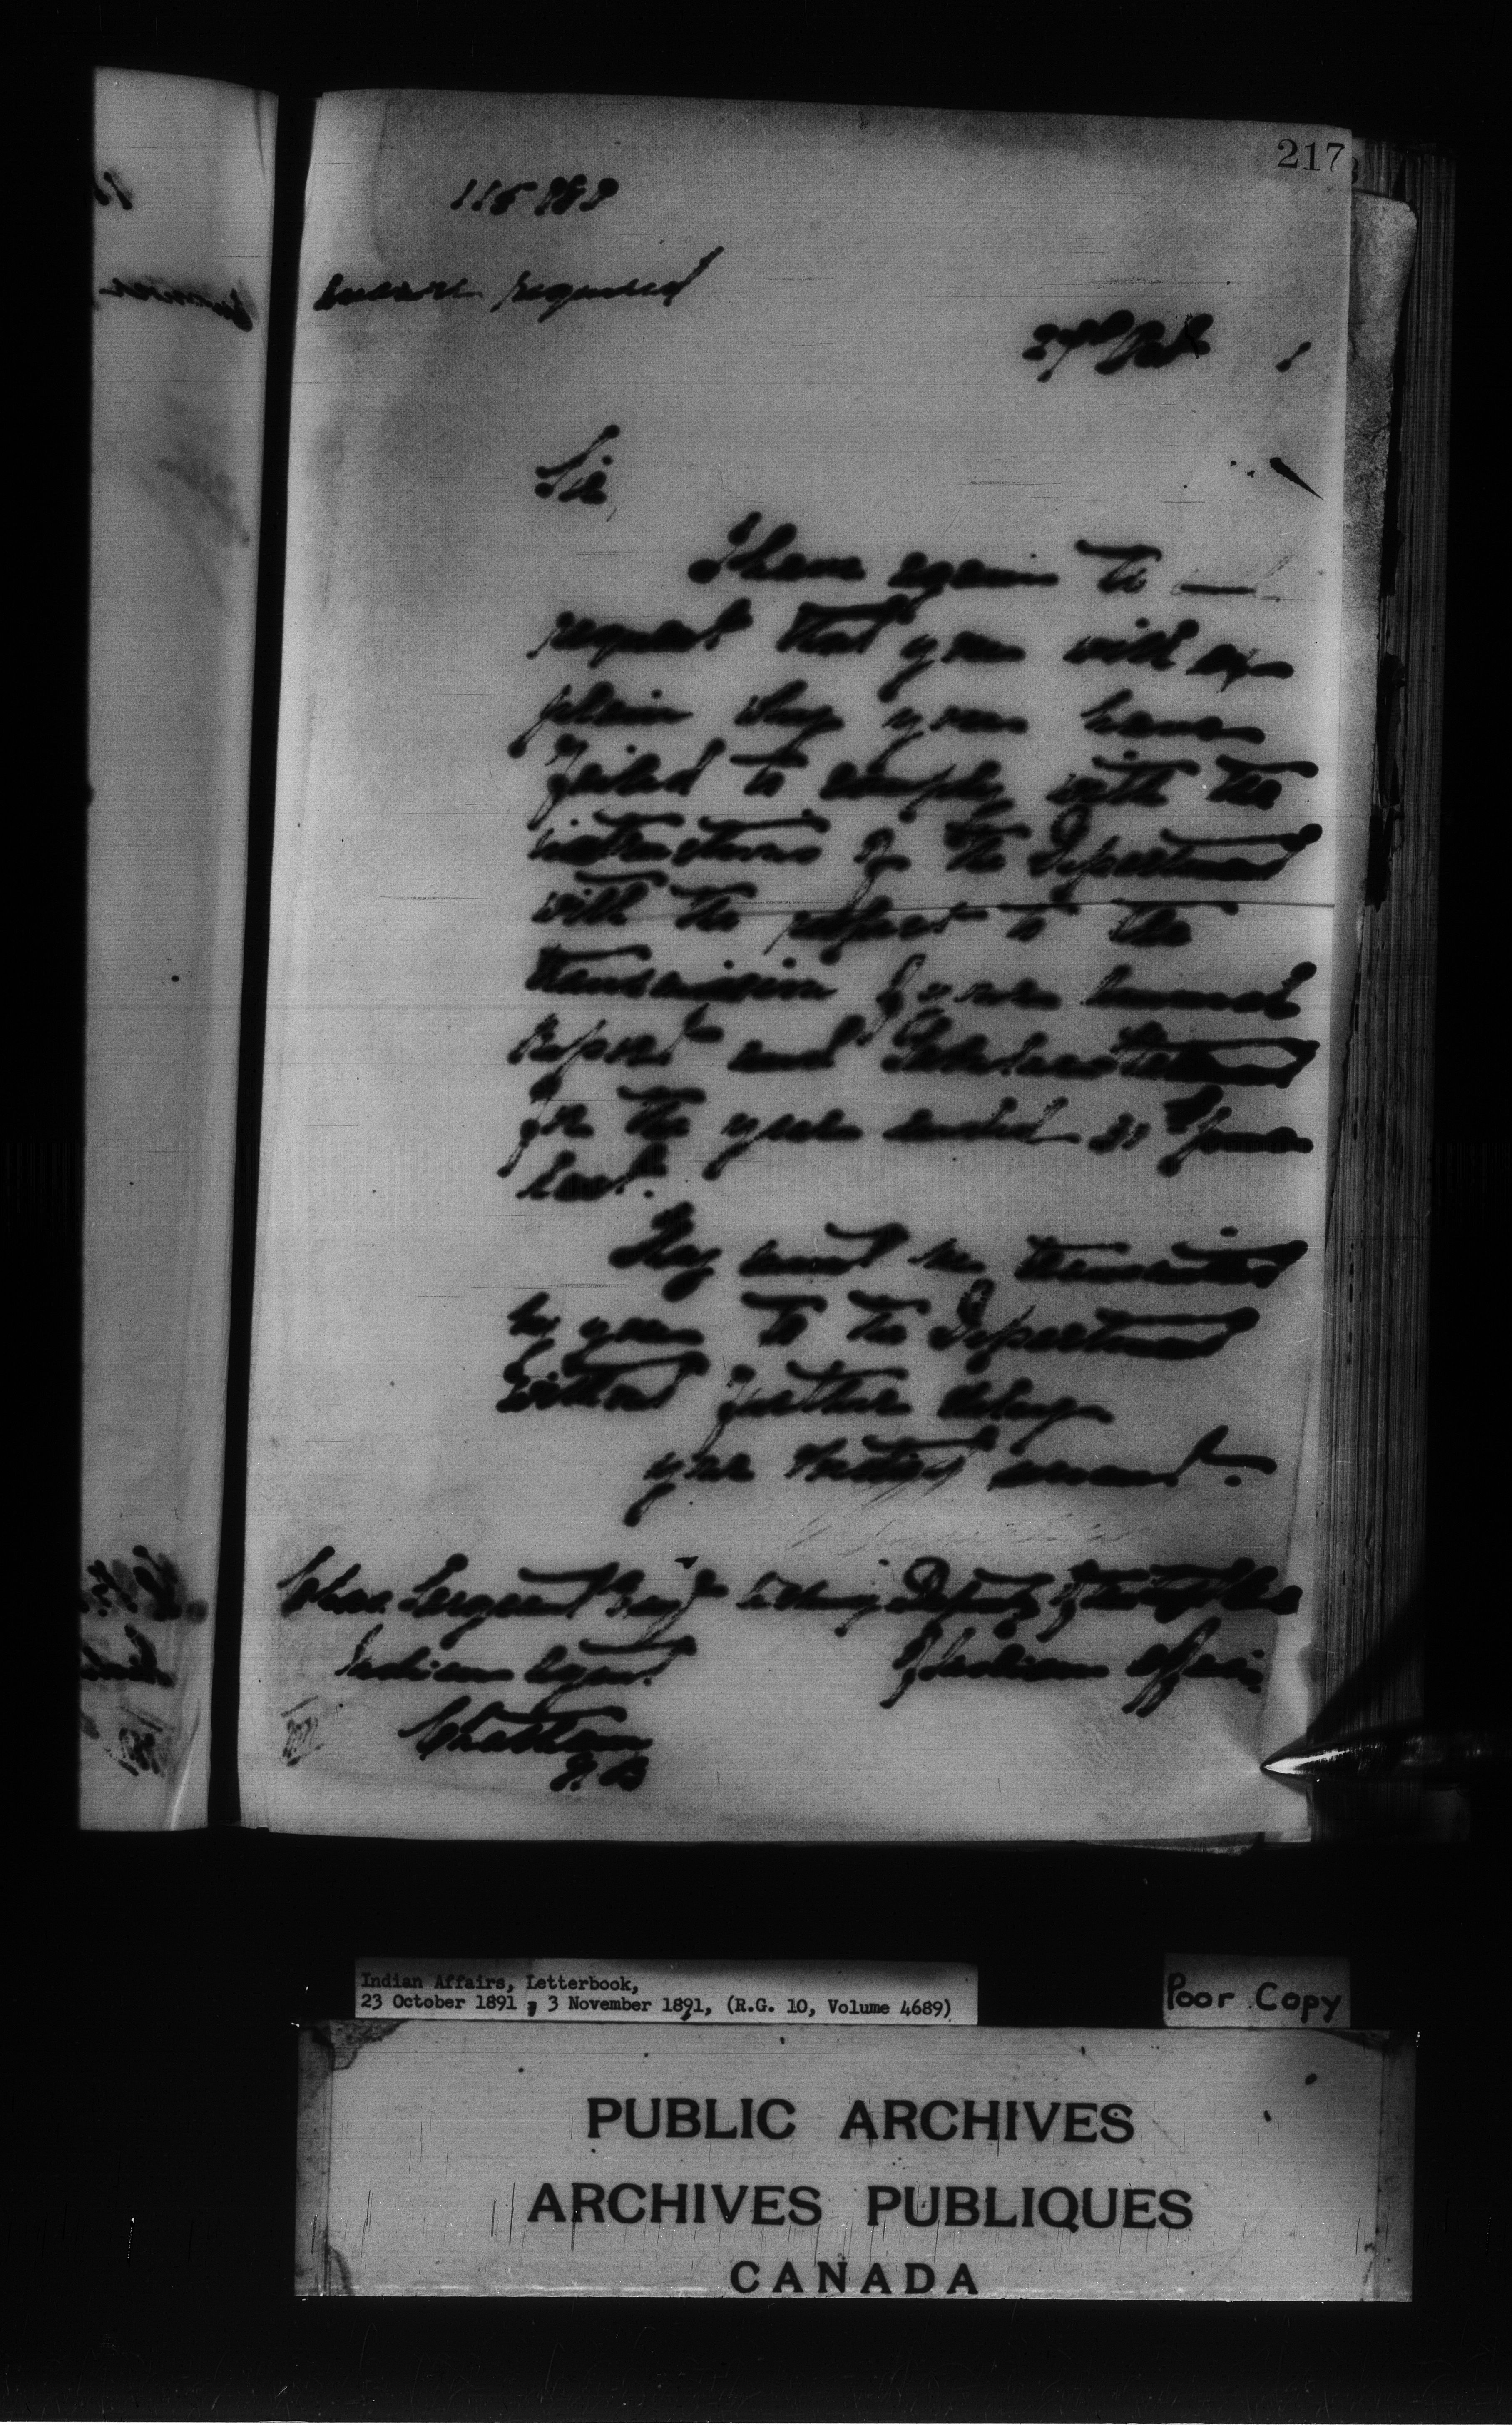 217
Answer required
27th Oct 1
Sir,
I have again to
request that you will ex
plain why you have
failed to comply with the
instructions of the Department
with the respect to the
transmission of your Annual
Report and Tabular Statement
for the year ended 30th June
last.
They must be transmitted
by you to the Department
without further delay
Your obedient servant.
Chas. Sargeant Esq. Acting Deputy of the Supt. Gen.
Indian Agent of Indian Affairs
Chatham
N. B.
Indian Affairs, Letterbook,
23 October 1891, 3 November 1891, (R.G. 10, Volume 4689)
Poor Copy
PUBLIC ARCHIVES
ARCHIVES PUBLIQUES
CANADA